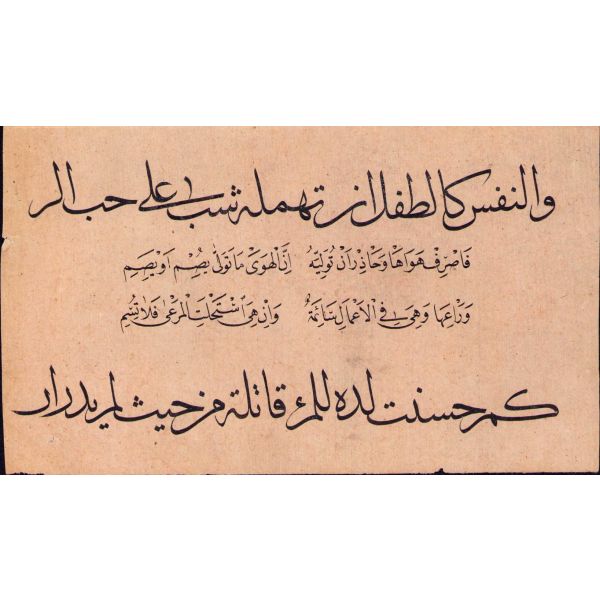 والنفس كالطفل ان تهمله شب على حب الر
فَاصْرِفْ هَوَاهَا وَحَاذِرْ اَنْ تُوَلِّيَهُ اِنَّ الْهَوَى مَا تَوَلَّى يُصْمِ اَوْ يَصِمِ
وَرَاعِهَا وَهِيَ فِي الْاَعْمَالِ سَائِمَةٌ وَاِنْ هِيَ اسْتَحْلَتِ الْمَرْعَى فَلَا تُسِمِ
كم حسنت لذه للمرء قاتلة من حيث لم يدر ان